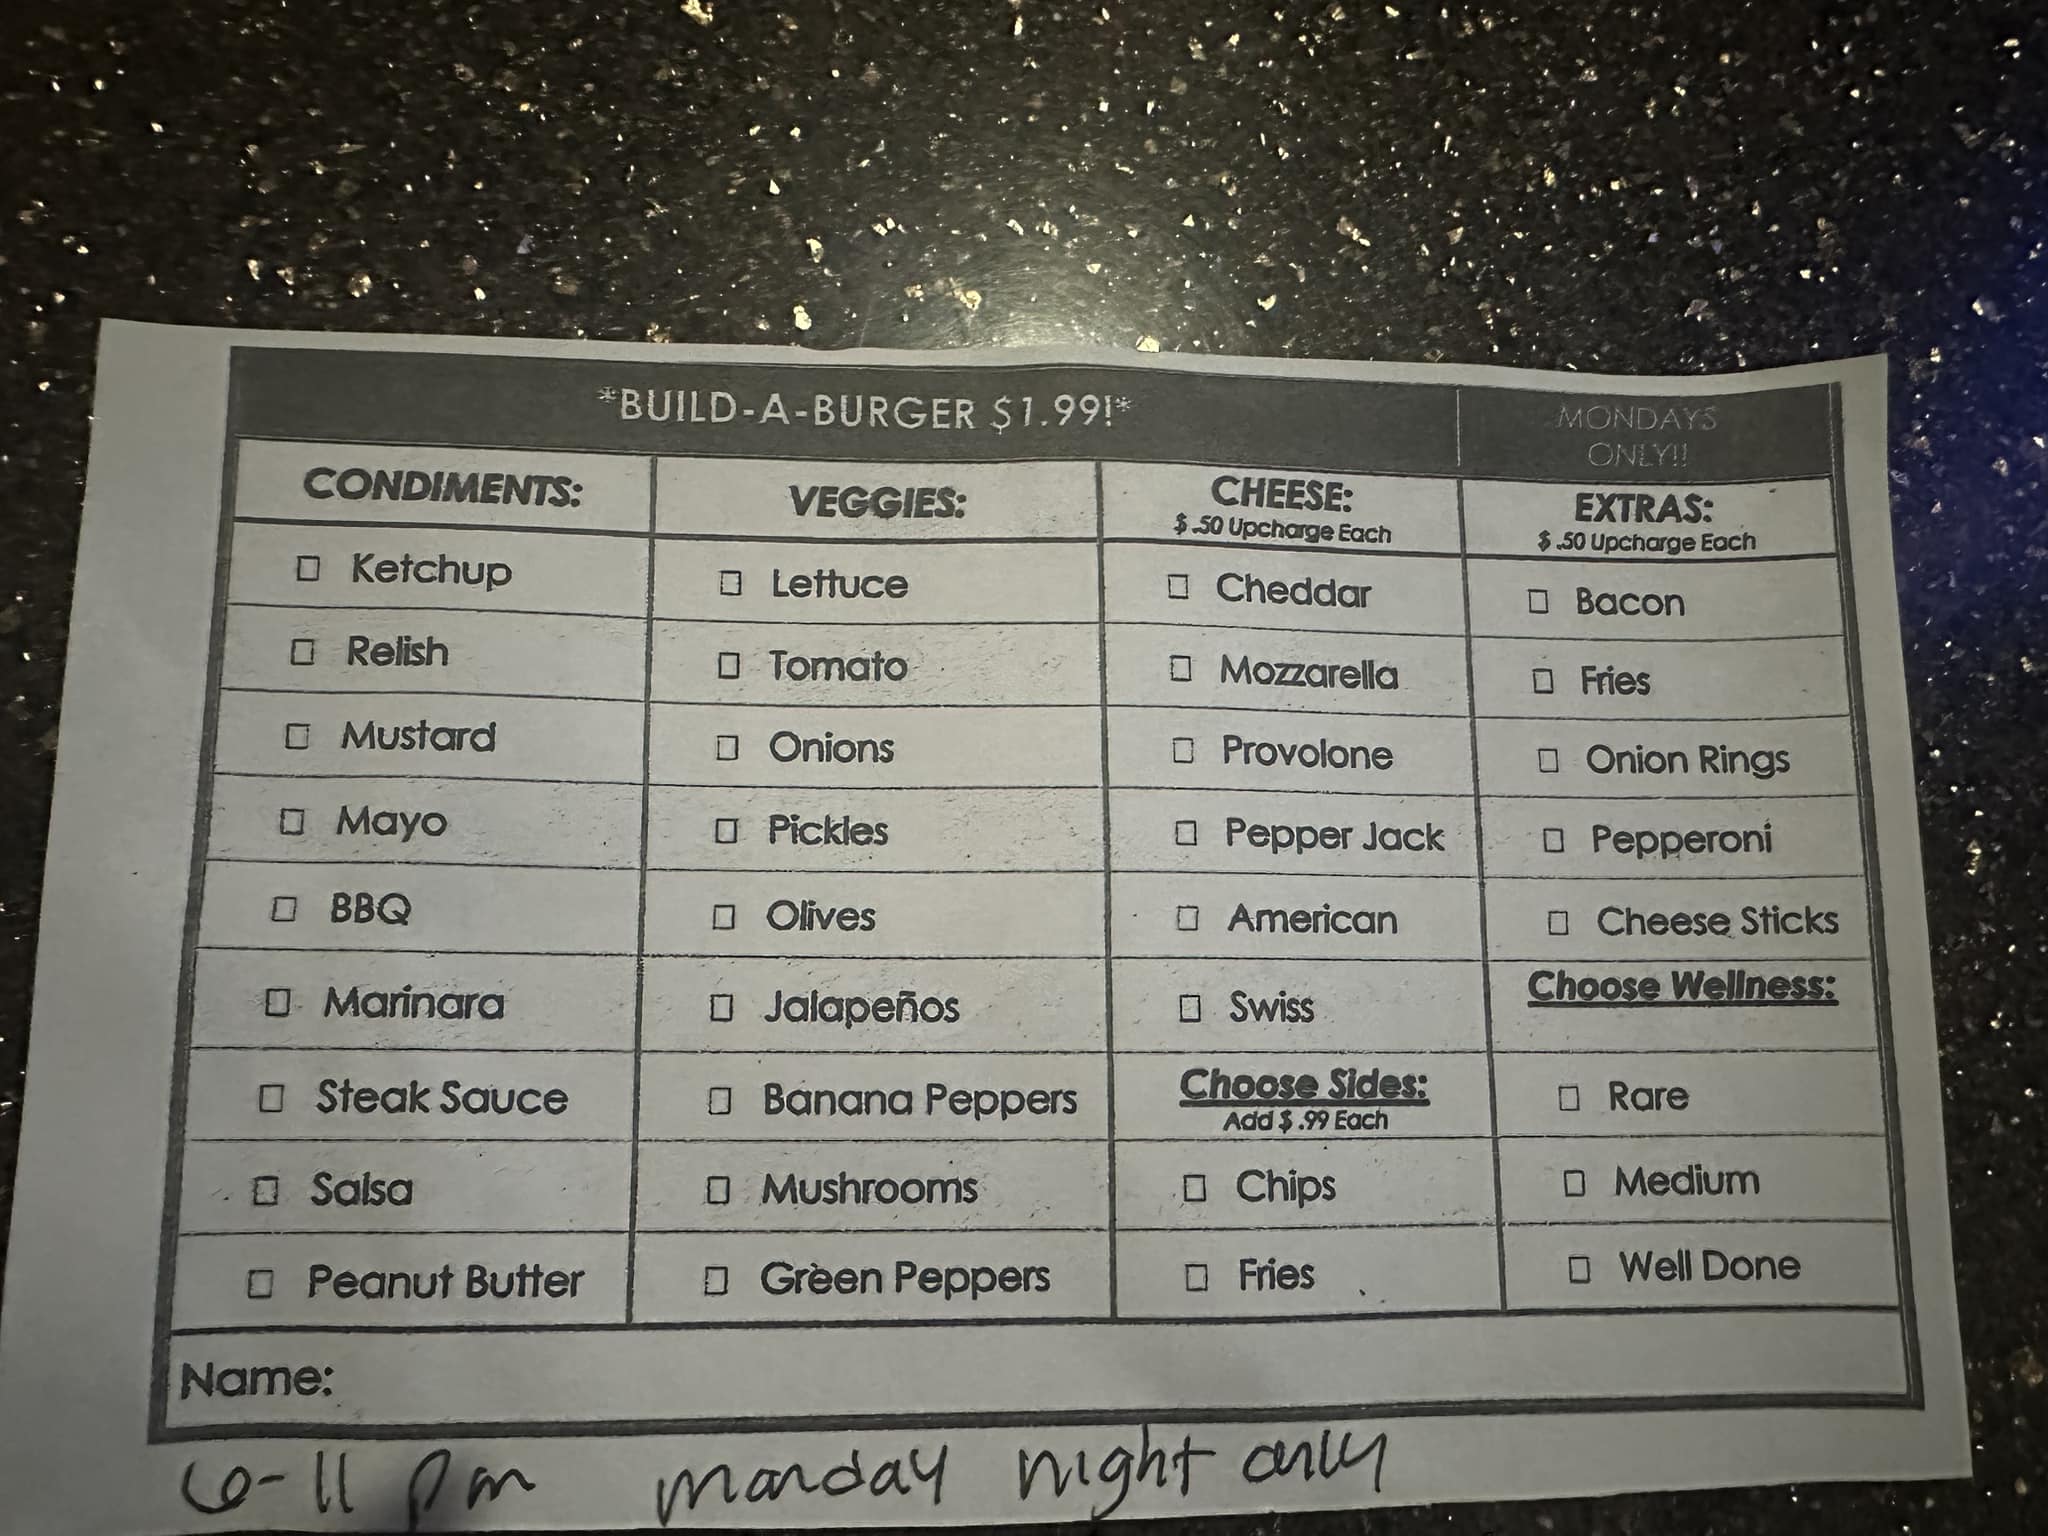 *BUILD-A-BURGER $1.99!*
MONDAYS
ONLY!!
CONDIMENTS:
VEGGIES:
CHEESE:
$ .50 Upcharge Each
EXTRAS:
$ .50 Upcharge Each
Ketchup
Lettuce
Cheddar
Bacon
Relish
Tomato
Mozzarella
Fries
Mustard
Onions
Provolone
Onion Rings
Mayo
Pickles
Pepper Jack
Pepperoni
BBQ
Olives
American
Cheese Sticks
Marinara
Jalapeños
Swiss
Choose Wellness:
Steak Sauce
Banana Peppers
Choose Sides:
Add $ .99 Each
Rare
Salsa
Mushrooms
Chips
Medium
Peanut Butter
Green Peppers
Fries
Well Done
Name:
6-11 pm monday night only